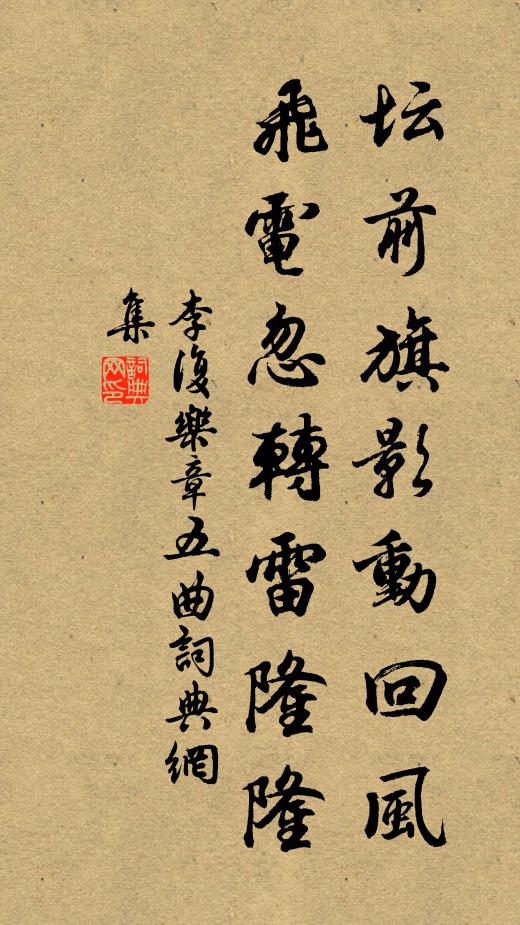 坛前旗影動回風
飛電忽轉雷隆隆
李復樂章五曲詞典網
集
詞典网印